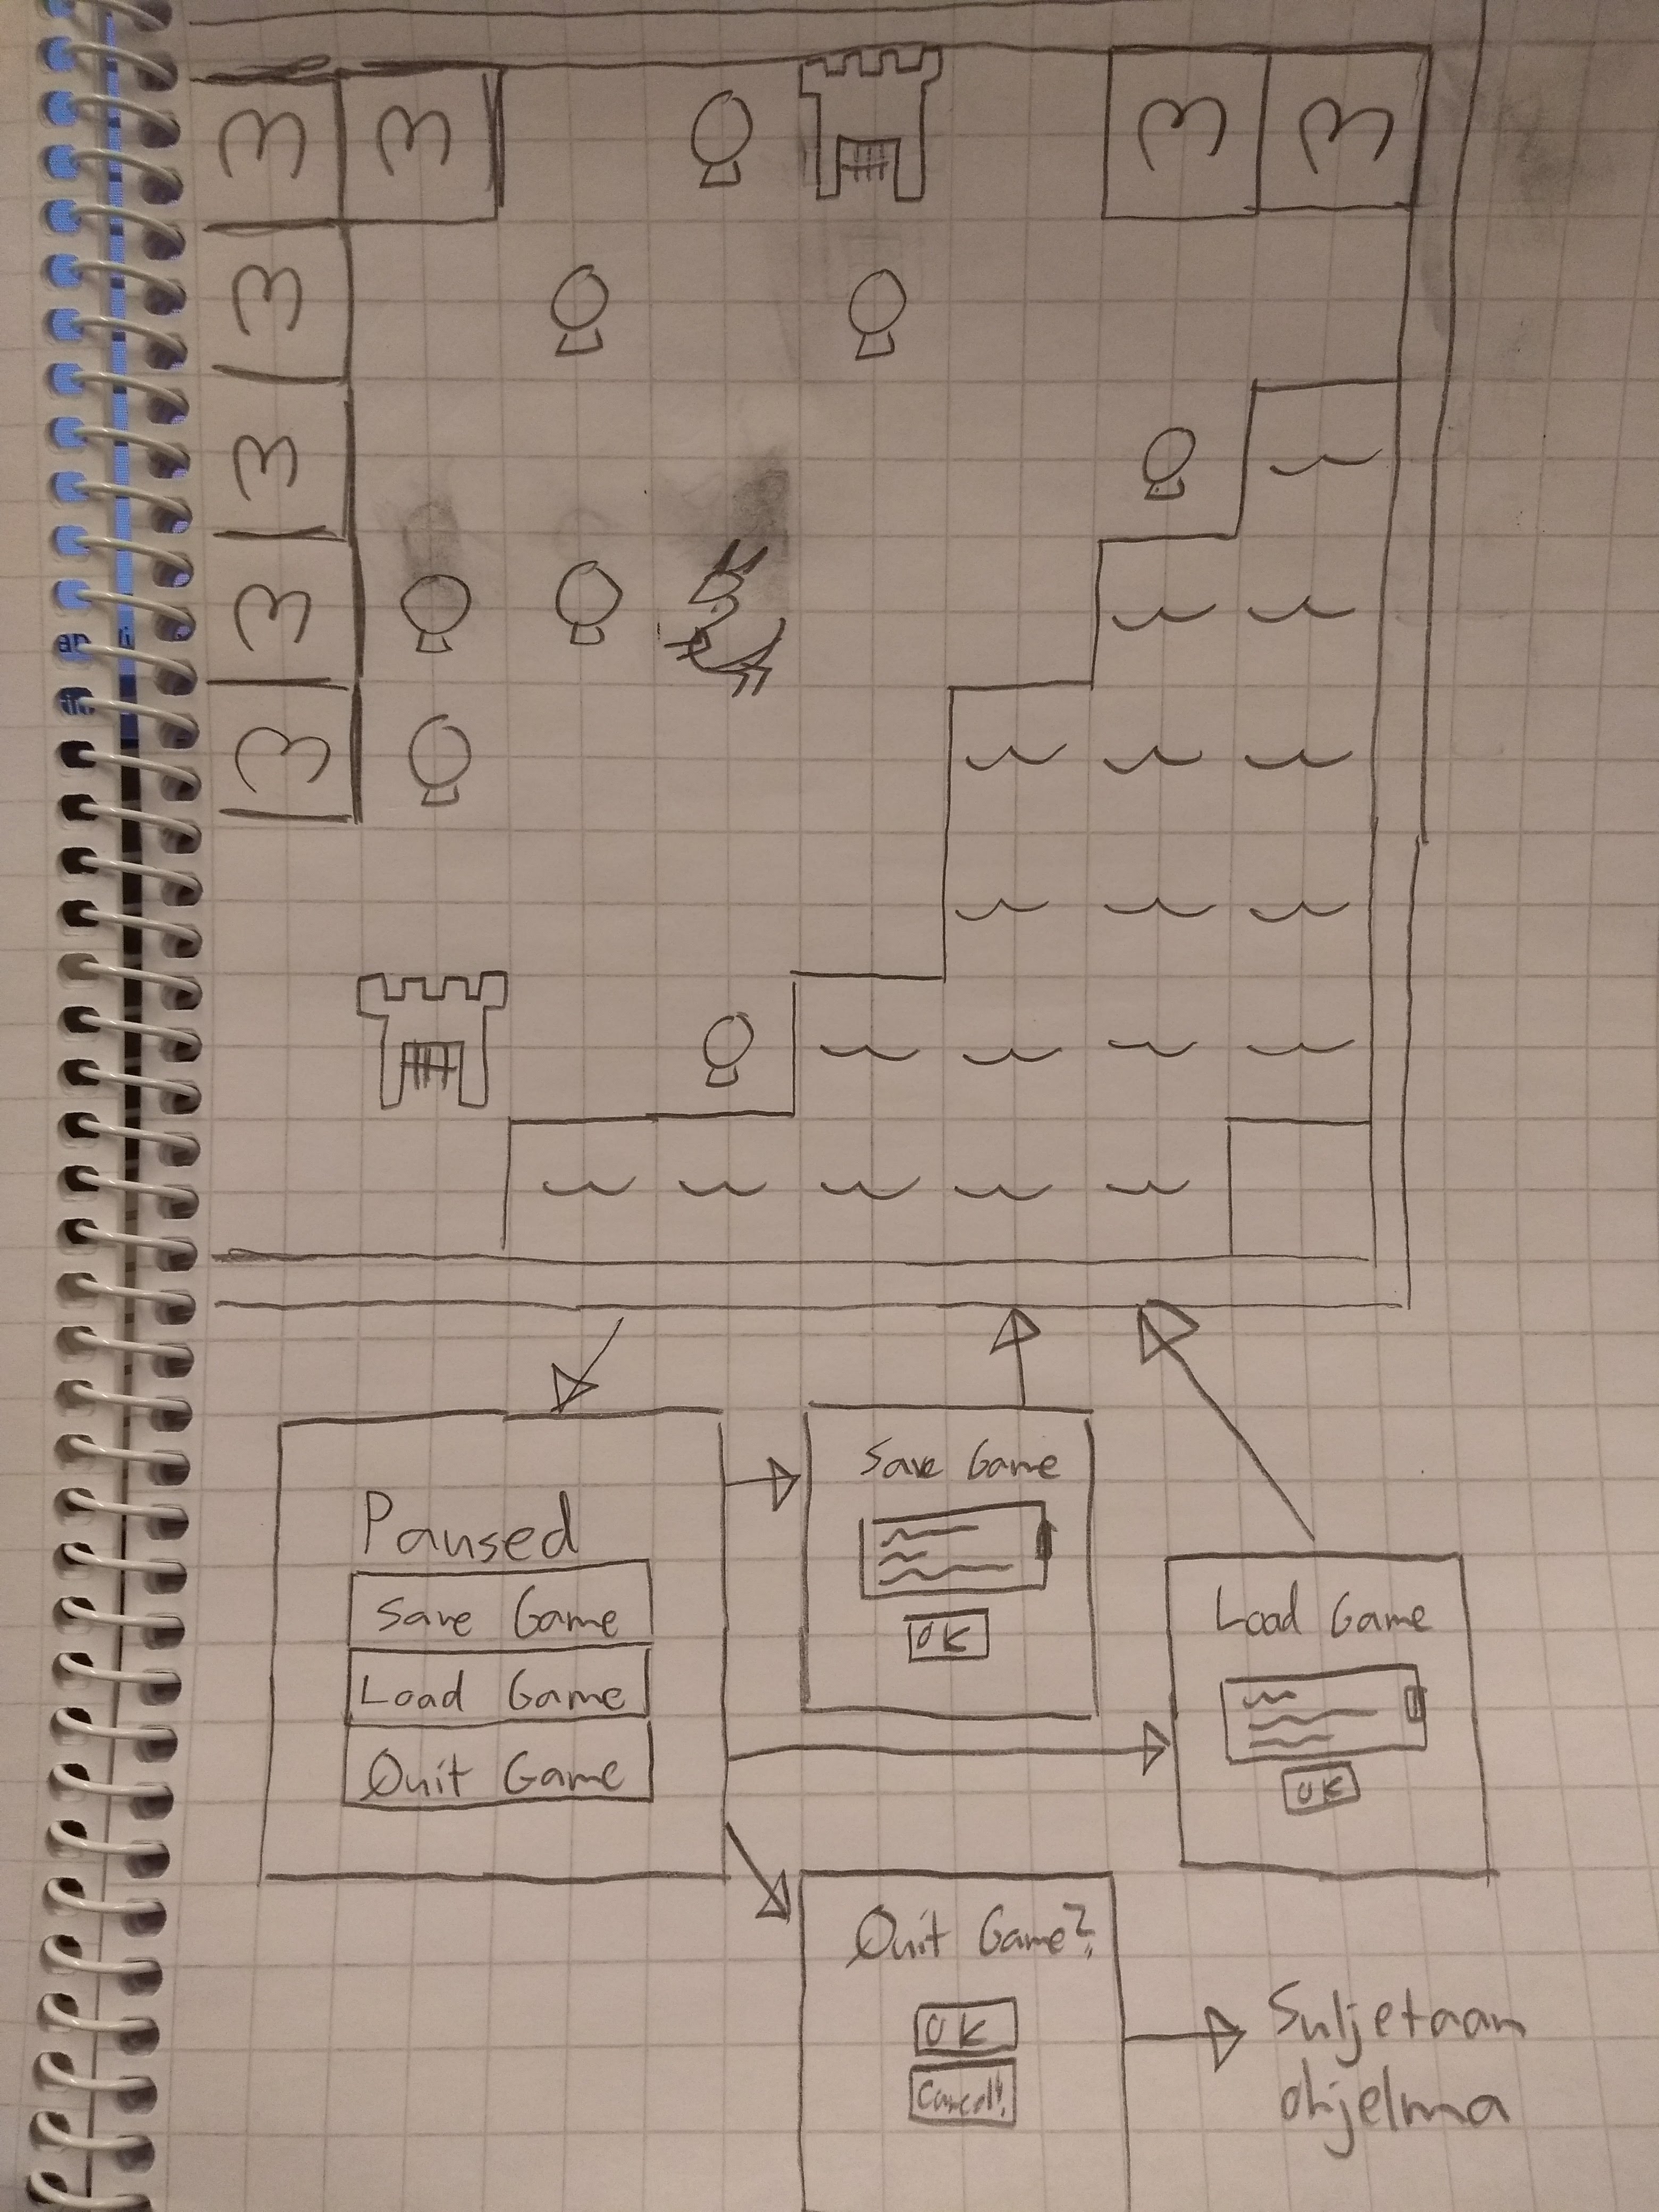 Paused
Save Game
Load Game
Quit Game
Save Game
OK
Load Game
OK
Quit Game?
OK
Cancel!
Suljetaan
ohjelma